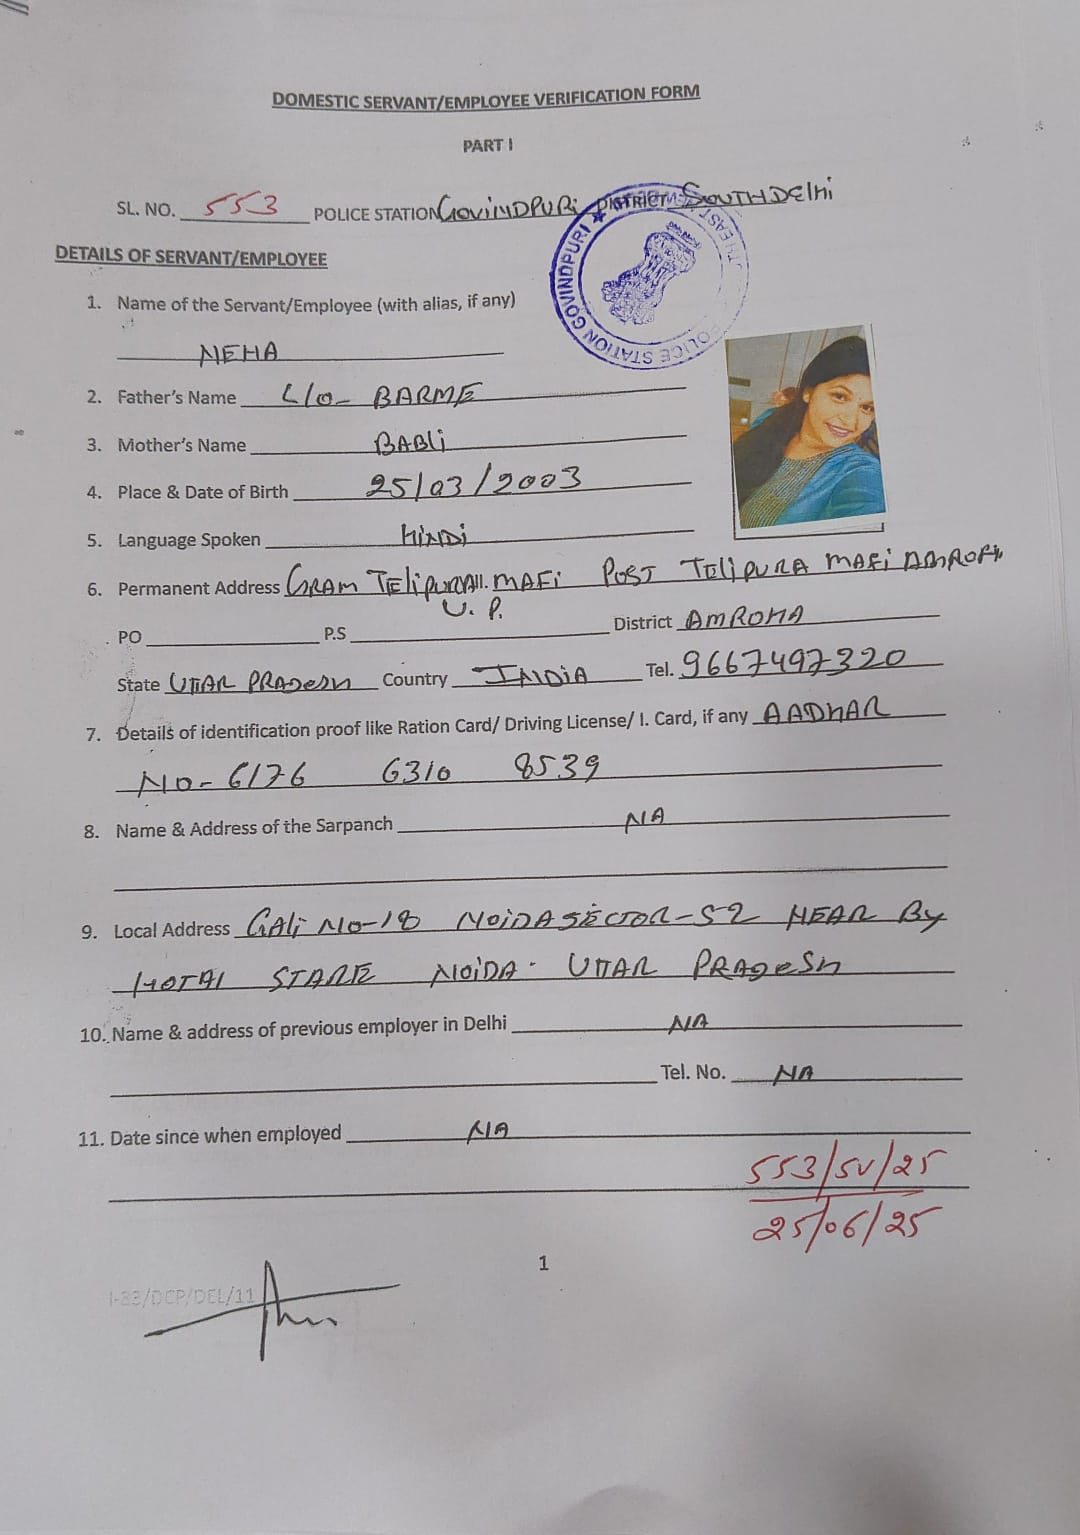 DOMESTIC SERVANT/EMPLOYEE VERIFICATION FORM
PART I
SL. NO. 553 POLICE STATION GOVINDPURI DISTRICT SOUTH DELHI
POLICE STATION GOVINDPURI
DETAILS OF SERVANT/EMPLOYEE
1. Name of the Servant/Employee (with alias, if any)
NEHA
2. Father's Name BARME
3. Mother's Name BABLI
4. Place & Date of Birth 25/03/2003
5. Language Spoken HINDI
6. Permanent Address GRAM MAFI POST TELIPURA MAFI
U.P.
PO P.S District AMROHA
State UTTAR PRADESH Country INDIA Tel. 9667497320
7. Details of identification proof like Ration Card/ Driving License/ I. Card, if any AADHAR
NO- 6176 6310 8539
8. Name & Address of the Sarpanch NA
9. Local Address GALI NO-18 NOIDA SECTOR-52 NEAR BY
HOTAL STARE NOIDA. UTTAR PRADESH
10. Name & address of previous employer in Delhi NA
Tel. No. NA
11. Date since when employed NA
553/SV/25
25/06/25
1
I-83/DCP/DEL/11